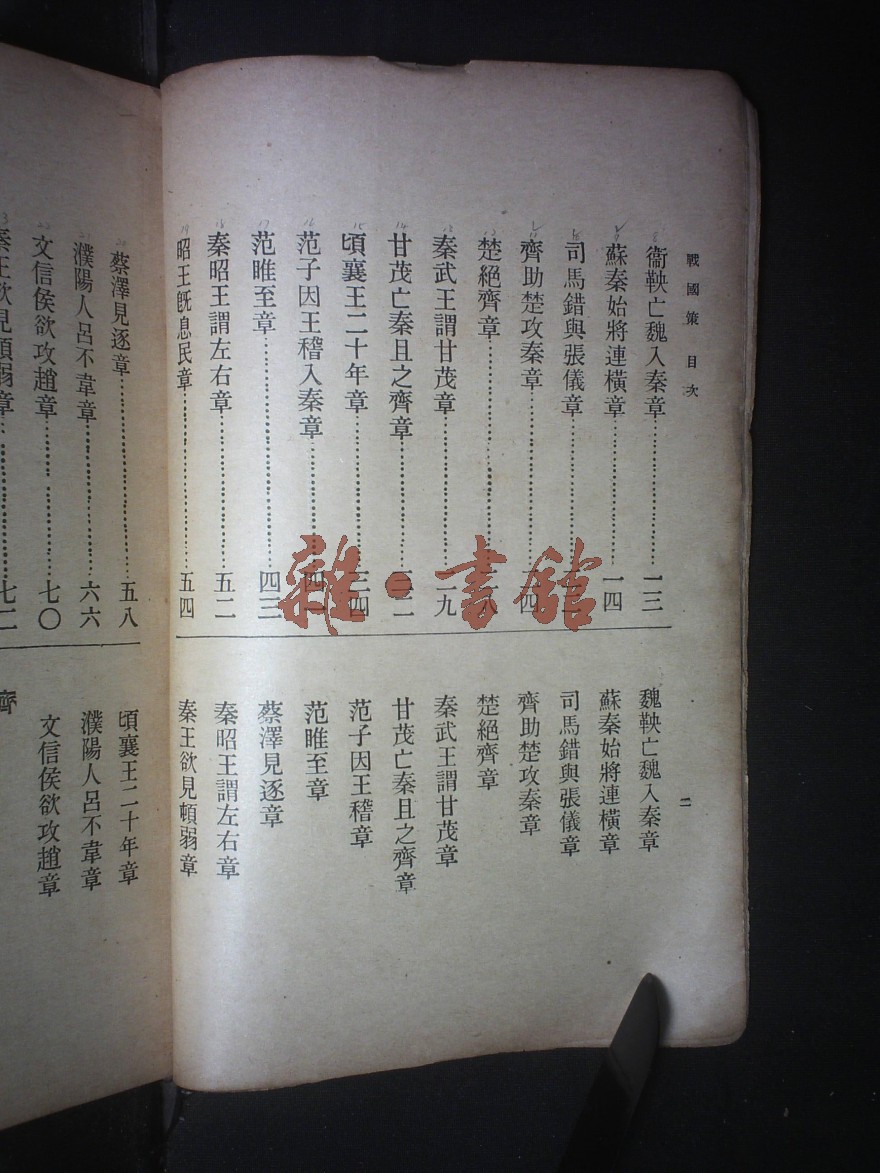 戰國策 目次
二
衞鞅亡魏入秦章……一三
蘇秦始將連橫章……一四
司馬錯與張儀章……
齊助楚攻秦章……
楚絕齊章……
秦武王謂甘茂章……二九
甘茂亡秦且之齊章……
頃襄王二十年章……三四
范子因王稽入秦章……
范睢至章……四三
秦昭王謂左右章……五二
昭王旣息民章……五四
魏鞅亡魏入秦章
蘇秦始將連橫章
司馬錯與張儀章
齊助楚攻秦章
楚絕齊章
秦武王謂甘茂章
甘茂亡秦且之齊章
范子因王稽章
范睢至章
蔡澤見逐章
秦昭王謂左右章
秦王欲見頓弱章
蔡澤見逐章……五八
濮陽人呂不韋章……六六
文信侯欲攻趙章……七〇
秦王欲見頓弱章……七二
頃襄王二十年章
濮陽人呂不韋章
文信侯欲攻趙章
齊
雜·書館